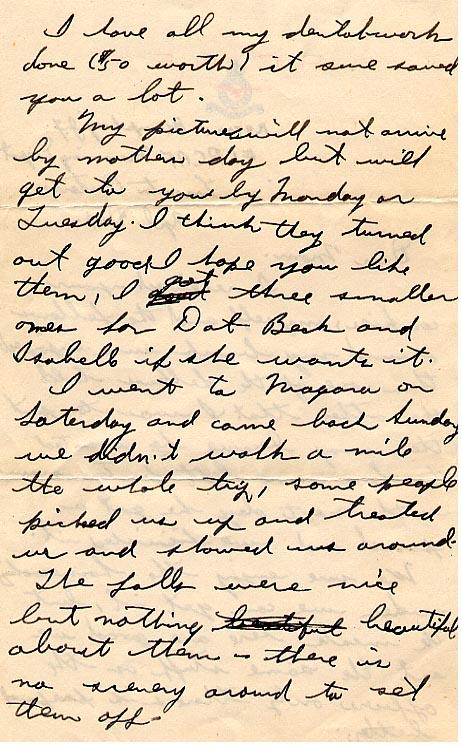 I have all my dentalwork
done ($50 worth) it sure saved
you a lot.
My pictures will not arrive
by mothers day but will
get to you by Monday or
Tuesday. I think they turned
out good I hope you like
them, I got three smaller
ones for Dat Beck and
Isabell if she wants it.
I went to Niagara on
Saterday and came back Sunday
we didn't walk a mile
the whole trip, some people
picked us up and treated
us and showed us around.
The falls were nice
but nothing beautiful beautiful
about them - there is
no srenery around to set
them off.